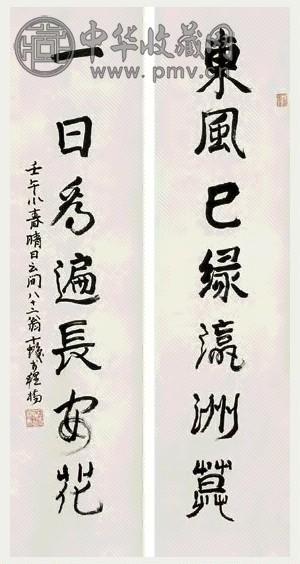 中华收藏网
www.pmv.cn
東風已緑瀛洲草
一日看遍長安花
壬午小春晴日云间八十二翁十髮书